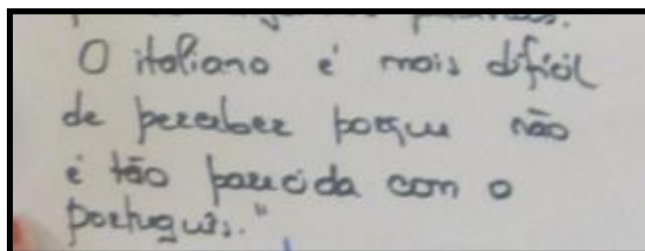 O italiano é mais difícil
de perceber porque não
é tão parecida com o
português."